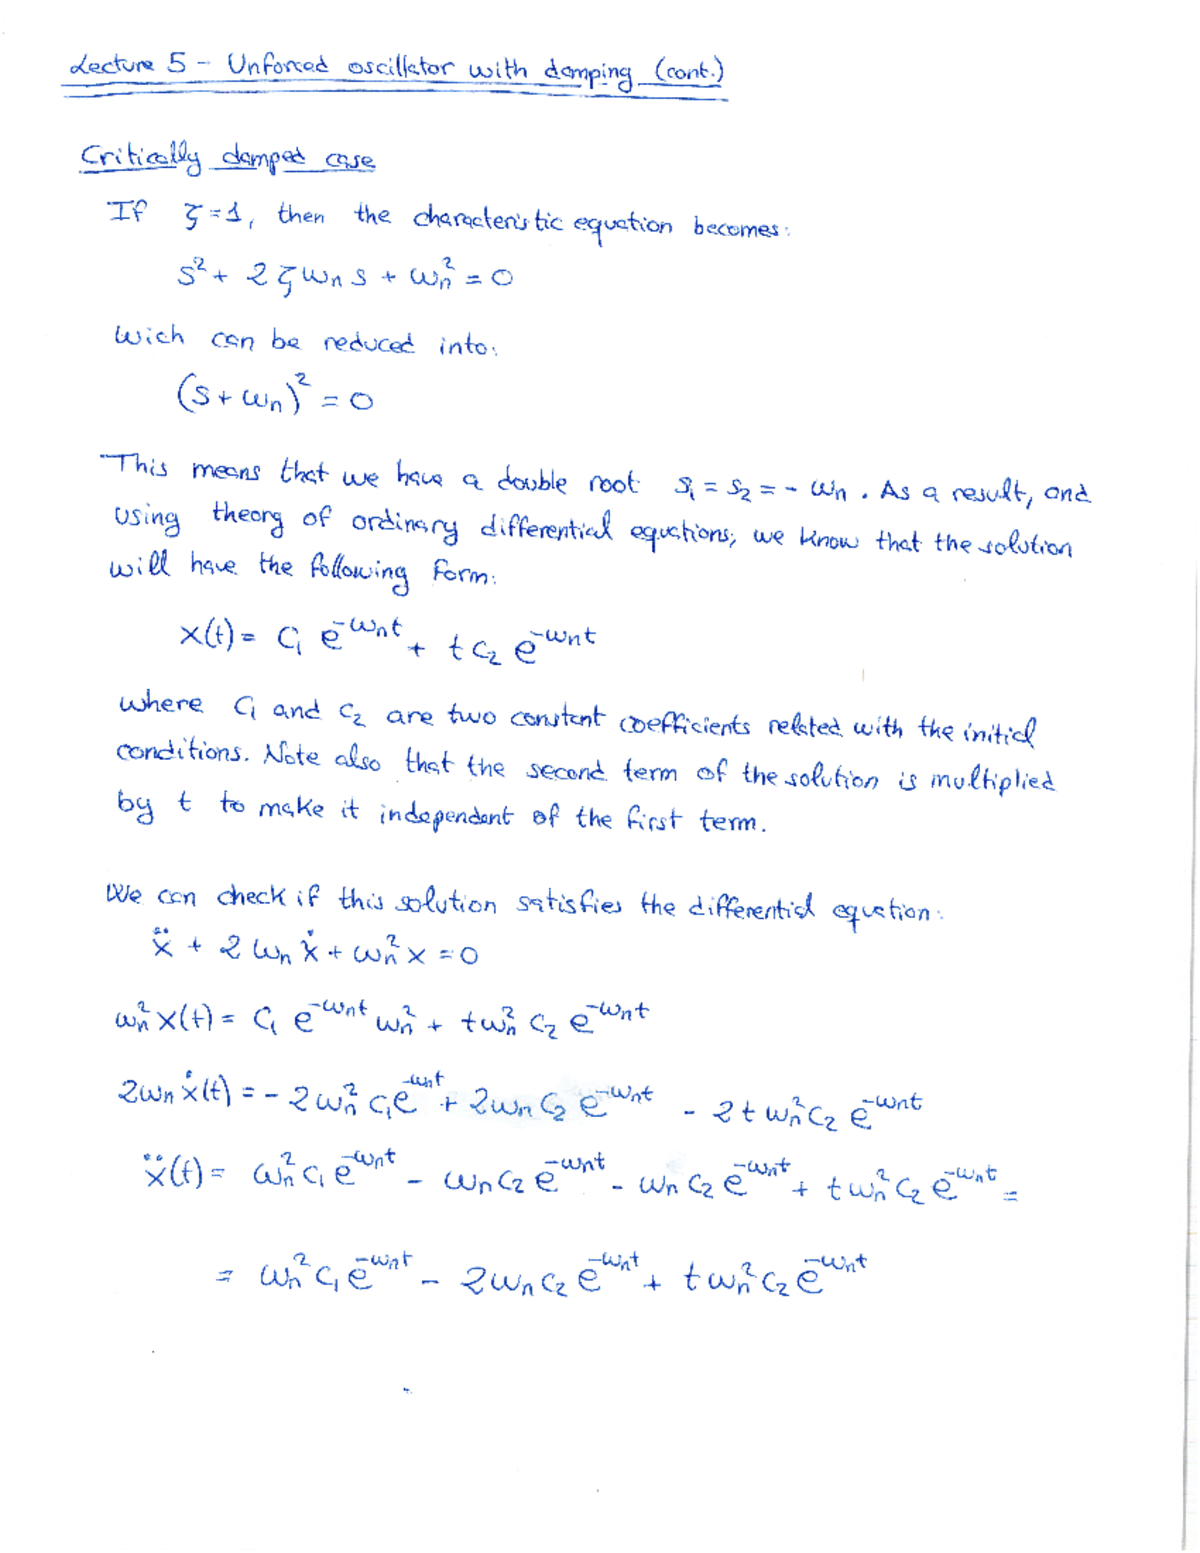 Lecture 5 - Unforced oscillator with damping (cont.)
Critically damped case
If ζ=1, then the characteristic equation becomes:
s² + 2ζωn s + ωn² = 0
Wich can be reduced into:
(s + ωn)² = 0
This means that we have a double root s₁ = s₂ = - ωn. As a result, and
using theory of ordinary differential equations, we know that the solution
will have the following form:
x(t) = c₁ e^-ωnt + t c₂ e^-ωnt
where c₁ and c₂ are two constant coefficients related with the initial
conditions. Note also that the second term of the solution is multiplied
by t to make it independent of the first term.
We can check if this solution satisfies the differential equation:
ẍ + 2ωn ẋ + ωn² x = 0
ωn² x(t) = c₁ e^-ωnt ωn² + tωn² c₂ e^-ωnt
2ωn ẋ(t) = - 2ωn² c₁e^-ωnt + 2ωn c₂ e^-ωnt - 2t ωn² c₂ e^-ωnt
ẍ(t) = ωn² c₁ e^-ωnt - ωn c₂ e^-ωnt - ωn c₂ e^-ωnt + t ωn² c₂ e^-ωnt =
= ωn² c₁ e^-ωnt - 2ωn c₂ e^-ωnt + t ωn² c₂ e^-ωnt